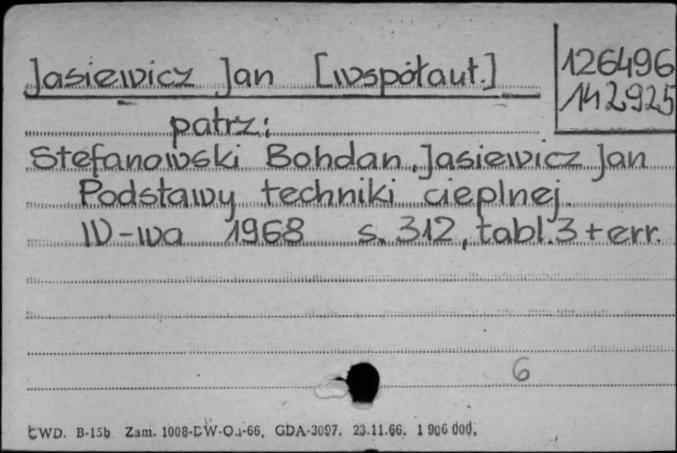 Jasiewicz Jan [współaut.]
126496
142925
patrz:
Stefanowski Bohdan, Jasiewicz Jan
Podstawy techniki cieplnej.
W-wa 1968 s. 312, tabl. 3 + err.
6
CWD. B-15b Zam. 1008-DW-O.i-66. GDA-3097. 23.11.66. 1 906 000.